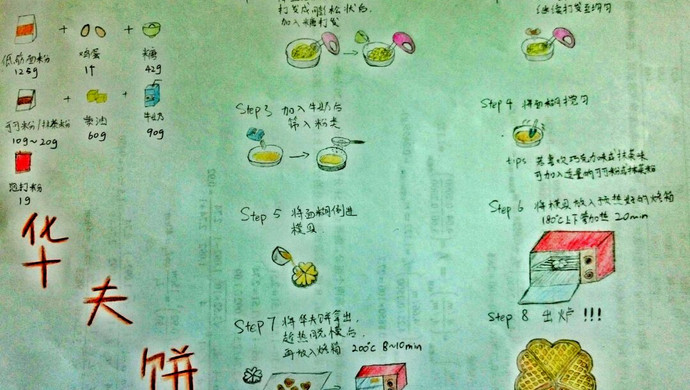 低筋面粉
125g
+
鸡蛋
1个
+
糖
42g
可可粉/抹茶粉
10g~20g
+
黄油
60g
+
牛奶
90g
泡打粉
1g
华夫饼
加入糖打发
继续打发至均匀
Step 3 加入牛奶后
筛入粉类
Step 4 将面糊拌匀
tips 若喜欢巧克力味或抹茶味
可加入适量的可可粉或抹茶粉
Step 5 将面糊倒进
模具
Step 6 将模具放入预热好的烤箱
180℃上下管加热 20min
Step 7 将华夫饼拿出,
趁热脱模后
再放入烤箱 200℃ 8~10min
Step 8 出炉 !!!